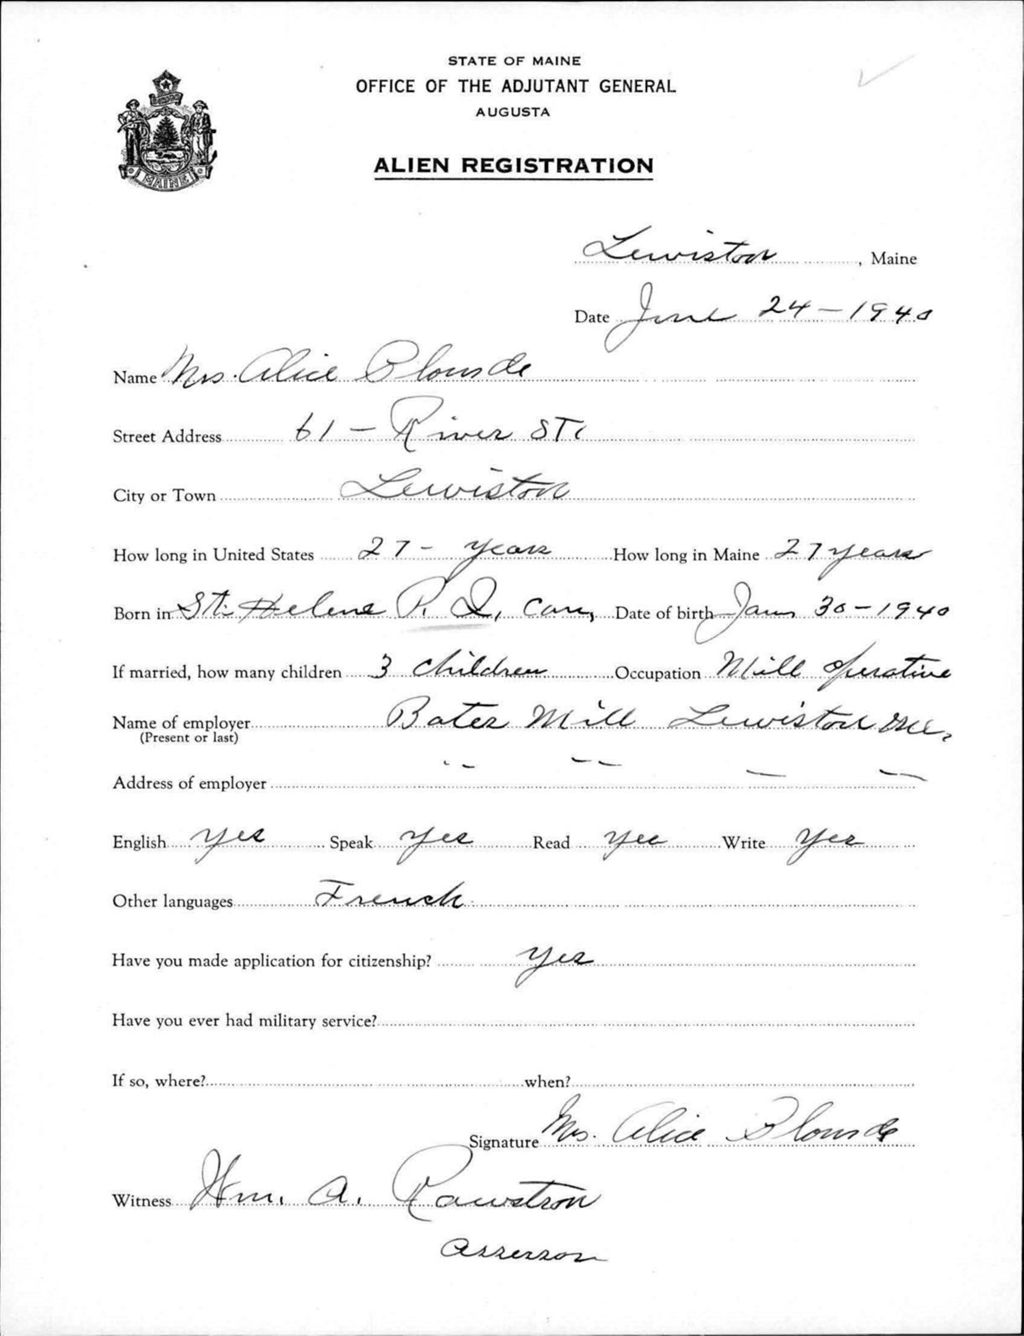 STATE OF MAINE
OFFICE OF THE ADJUTANT GENERAL
AUGUSTA
ALIEN REGISTRATION
MAINE
Lewiston, Maine
Date June 24-1940
Name Mrs. Alice Plourde
Street Address 61 - River St.
City or Town Lewiston
How long in United States 27 - years How long in Maine 27 years
Born in St. Helene P. Q. Can, Date of birth Jan, 30-1940
If married, how many children 3 children Occupation Mill operative
Name of employer Bates Mill Lewiston Me.
(Present or last)
Address of employer " " " "
English yes Speak yes Read yes Write yes
Other languages French
Have you made application for citizenship? yes
Have you ever had military service?
If so, where? when?
Signature Mrs. Alice Plourde
Witness Wm. A. Rawstron
Assessor